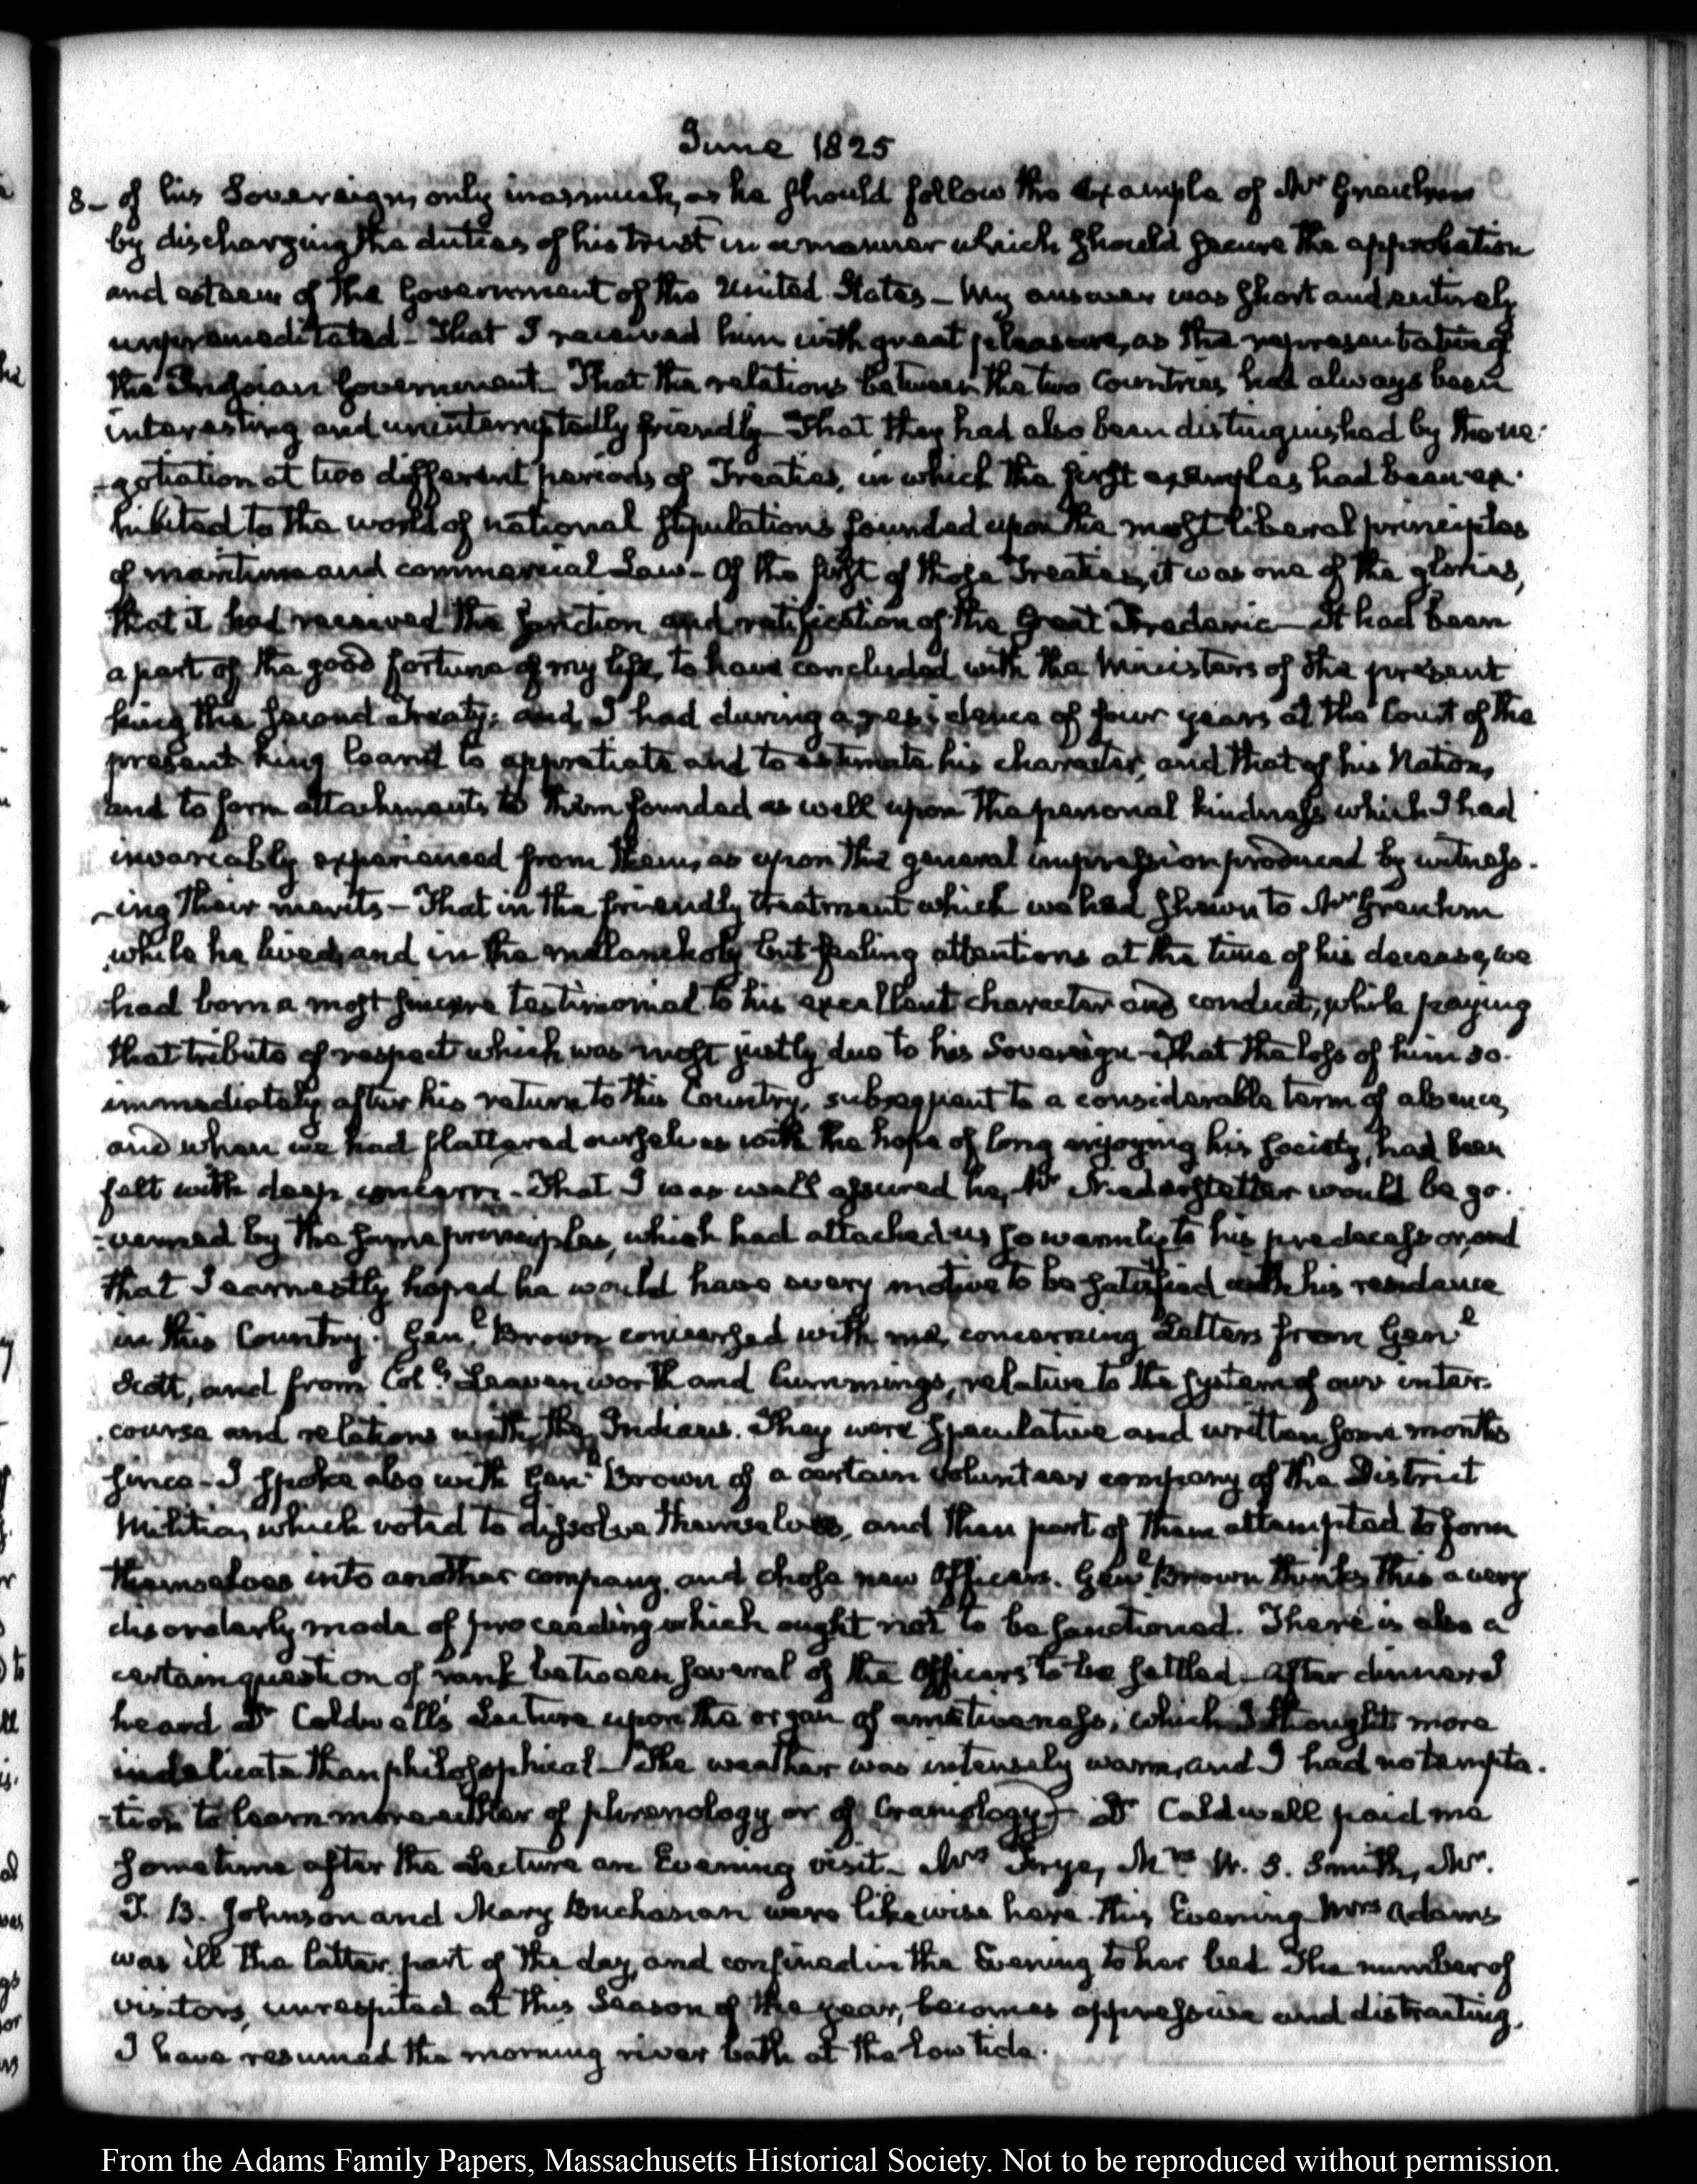 June 1825
8- of his Sovereign, only inasmuch, as he should follow the example of Mr Greuhm
by discharging the duties of his trust in a manner which should secure the approbation
and esteem of the Government of the United States - My answer was short and entirely
unpremeditated - That I received him with great pleasure, as the representative of
the Prussian Government. That the relations between the two Countries had always been
interesting and uninterruptedly friendly - That they had also been distinguished by the ne-
-gotiation at two different periods of Treaties, in which the first examples had been ex-
hibited to the world of national stipulations founded upon the most liberal principles
of maritime and commercial Law - Of the first of those Treaties, it was one of the glories,
that it had received the sanction and ratification of the Great Frederic - It had been
a part of the good fortune of my life, to have concluded with the Ministers of the present
king the second Treaty; and I had during a residence of four years at the Court of the
present king learnt to appretiate and to estimate his character, and that of his Nation,
and to form attachments to them founded as well upon the personal kindness which I had
invariably experienced from them, as upon the general impression produced by witness-
-ing their merits - That in the friendly treatment which we had shewn to Mr Greuhm
while he lived, and in the melancholy but feeling attentions at the time of his decease, we
had born a most sincere testimonial to his excellent character and conduct, while paying
that tribute of respect which was most justly due to his Sovereign - That the loss of him so
immediately after his return to this Country, subsequent to a considerable term of absence,
and when we had flattered ourselves with the hope of long enjoying his society, had been
felt with deep concern - That I was well assured he, Mr Niederstetter would be go-
-verned by the same principles, which had attached us so warmly to his predecessor, and
that I earnestly hoped he would have every motive to be satisfied with his residence
in this Country. Genl Brown conversed with me, concerning Letters from Genl
Scott, and from Cols Leavenworth and Cummings, relative to the system of our inter-
course and relations with the Indians. They were speculative and written some months
since - I spoke also with Genl Brown of a certain volunteer company of the District
Militia, which voted to dissolve themselves, and then part of them attempted to form
themselves into another company, and chose new Officers. Genl Brown thinks this a very
disorderly mode of proceeding which ought not to be sanctioned. There is also a
certain question of rank between several of the Officers to be settled - After dinner I
heard Dr Caldwell's Lecture upon the organ of amativeness; which I thought more
indelicate than philosophical - The weather was intensely warm, and I had no tempta-
-tion to learn more either of phrenology or of Craniology - Dr Caldwell paid me
sometime after the Lecture an Evening visit - Mrs Frye, Mrs W. S. Smith, Mr.
T. B. Johnson and Mary Buchanan were likewise here this Evening Mrs Adams
was ill the latter part of the day, and confined in the Evening to her bed. The number of
visitors, unrespited at this Season of the year, becomes oppressive and distracting.
I have resumed the morning river bath at the low tide.
From the Adams Family Papers, Massachusetts Historical Society. Not to be reproduced without permission.